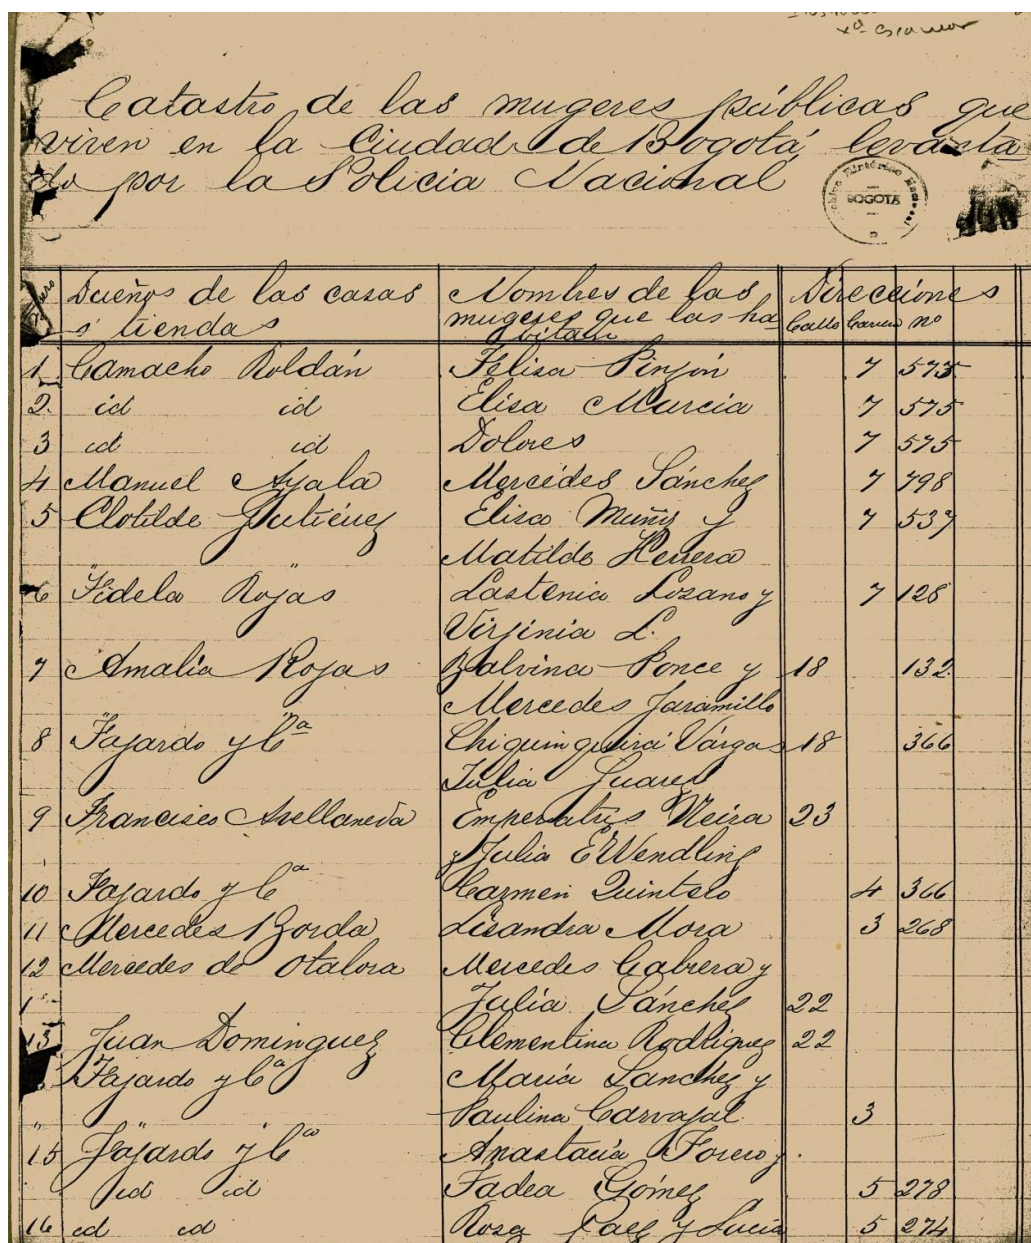 Catastro de las mugeres públicas que
viven en la Ciudad de Bogotá levanta
do por la Policia Nacional
Archivo Histórico Nacional
BOGOTA
Dueños de las casas Nombres de las Direcciones
ó tiendas mugeres que las ha Calle Carrera nº
bitan
1 Camacho Roldán Felisa Pinzón 7 575
2. id id Elisa Murcia 7 575
3 id id Dolores 7 575
4 Manuel Ayala Mercedes Sánchez 7 798
5 Clotilde Gutiérrez Elisa Muñiz y 7 537
Matilde Herrera
6 Fidela Rojas Lastenia Lozano y 7 128
Virjinia L.
7 Amalia Rojas Balvina Ponce y 18 132
Mercedes Jaramillo
8 Fajardo y Cª Chiquinquirá Várgas 18 366
Julia Juarez
9 Francisco Avellaneda Emperatris Neira 23
y Julia E Wendling
10 Fajardo y Cª Carmen Quintero 4 366
11 Mercedes Borda Lisandra Mora 3 268
12 Mercedes de Otalora Mercedes Cabrera y
Julia Sánchez 22
13 Juan Dominguez Clementina Rodríguez 22
Fajardo y Cª María Sanchez y
Paulina Carvajal 3
15 Fajardo y Cª Anastacia Forero y
id id Fadea Gómez 5 278
16 id id Rosa Paez y Lucía 5 274